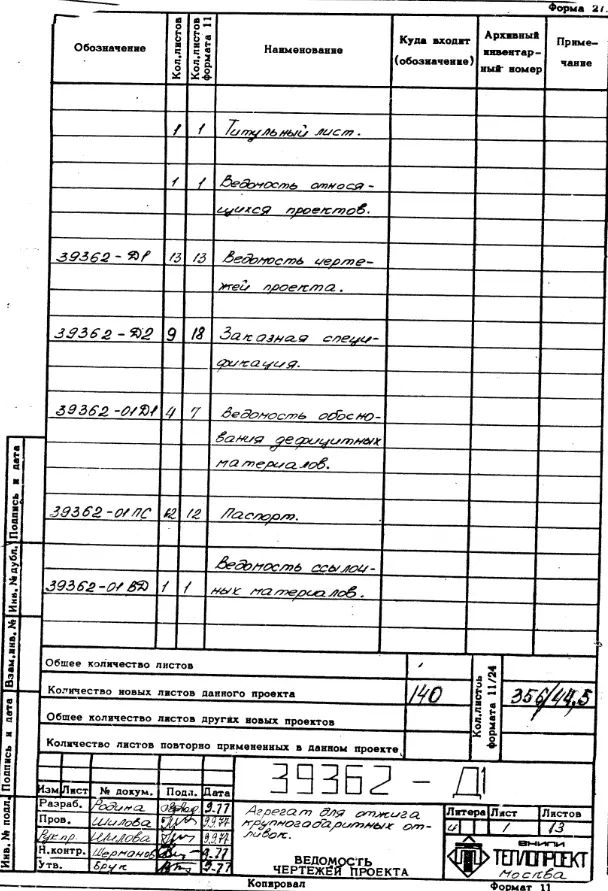 Форма 27.
Обозначение Кол.листов Кол.листов формата 11 Наименование Куда входит (обозначение) Архивный инвентарный номер Приме-чание
1 1 Титульный лист.
1 1 Ведомость относя-
щихся проектов.
39362-Д1 13 13 Ведомость черте-
жей проекта.
39362-Д2 9 18 Заказная специ-
фикация.
39362-01Д1 4 7 Ведомость обосно-
вания дефицитных
материалов.
39362-01ПС 12 12 Паспорт.
Ведомость ссылоч-
39362-01ВД 1 1 ных материалов.
Общее количество листов
Количество новых листов данного проекта 140 Кол.листов формата 11/24 356/44,5
Общее количество листов других новых проектов
Количество листов повторно примененных в данном проекте
39362-Д1
Изм Лист № докум. Подп. Дата
Разраб. Родина 9.77
Пров. Шилова 9.9.77
Рук.пр. Шилова 9.9.77
Н.контр. Шерманов 9.77
Утв. Брук 9.77
Агрегат для отжига
крупногабаритных от-
ливок.
ВЕДОМОСТЬ
ЧЕРТЕЖЕЙ ПРОЕКТА
Литера Лист Листов
и 1 13
ВНИПИ
ТЕПЛОПРОЕКТ
Москва
Копировал Формат 11
Инв. № подл. Подпись и дата Взам.инв. № Инв. № дубл. Подпись и дата